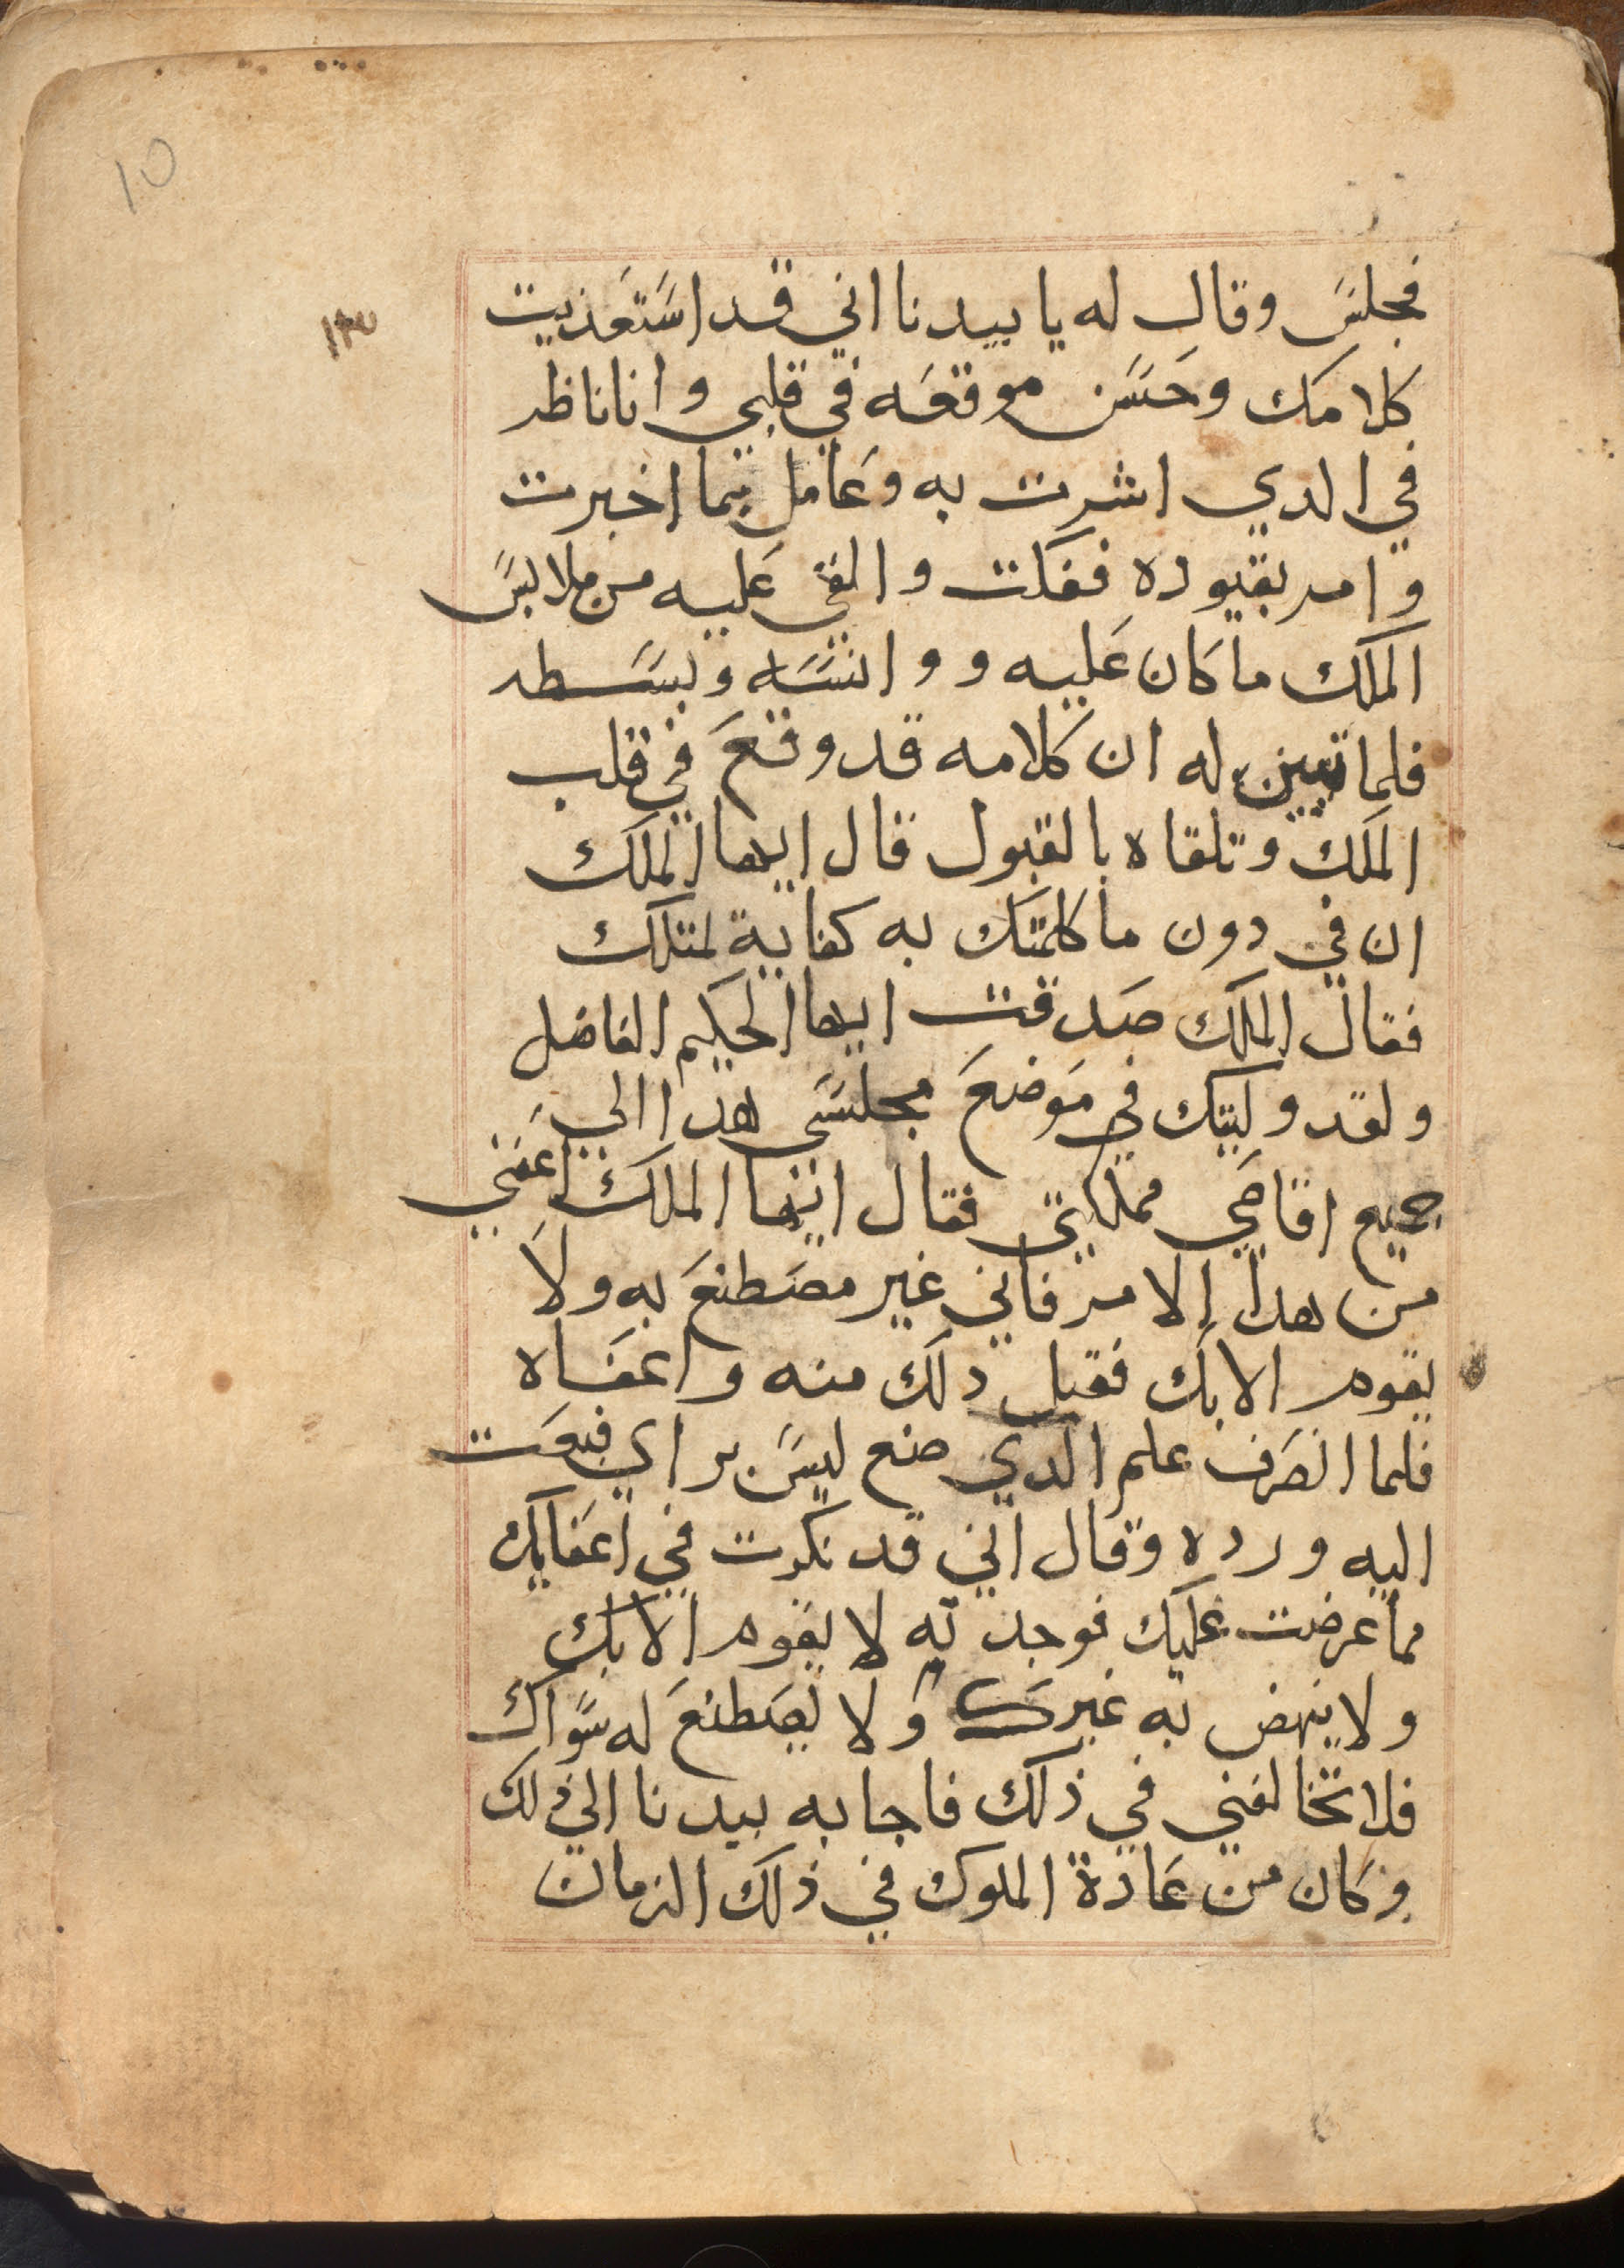 10
فجلس وقال له يا بيدبا اني قد استعذيت
كلامك وحسن موقعه في قلبي وانا ناظر
في الدي اشرت به وعامل بما اخبرت
وامر بقيوده ففكت والقى عليه من ملابس
الملك ما كان عليه و وانسه وبسطه
فلما تبين له ان كلامه قد وقع في قلب
الملك وتلقاه بالقبول قال ايها الملك
ان في دون ما كلمتك به كفاية لمتلك
فقال الملك صدقت ايها الحكيم الفاضل
ولقد وليتك في موضع مجلسى هدا الي
جميع اقاصي مملكتي فقال ايها الملك اعفني
من هدا الامر فاني غير مصطنع به ولا
يقوم الا بك فقبل دلك منه واعفاه
فلما انصرف علم الدي صنع ليس براي فبعت
اليه ورده وقال اني قد نكرت في اعفايك
مما عرضت عليك فوجدته لا يقوم الا بك
ولا ينهض به غيرك ولا يصطنع له سواك
فلا تخالفني في ذلك فاجابه بيدبا الى ذلك
وكان من عادة الملوك في ذلك الزمان